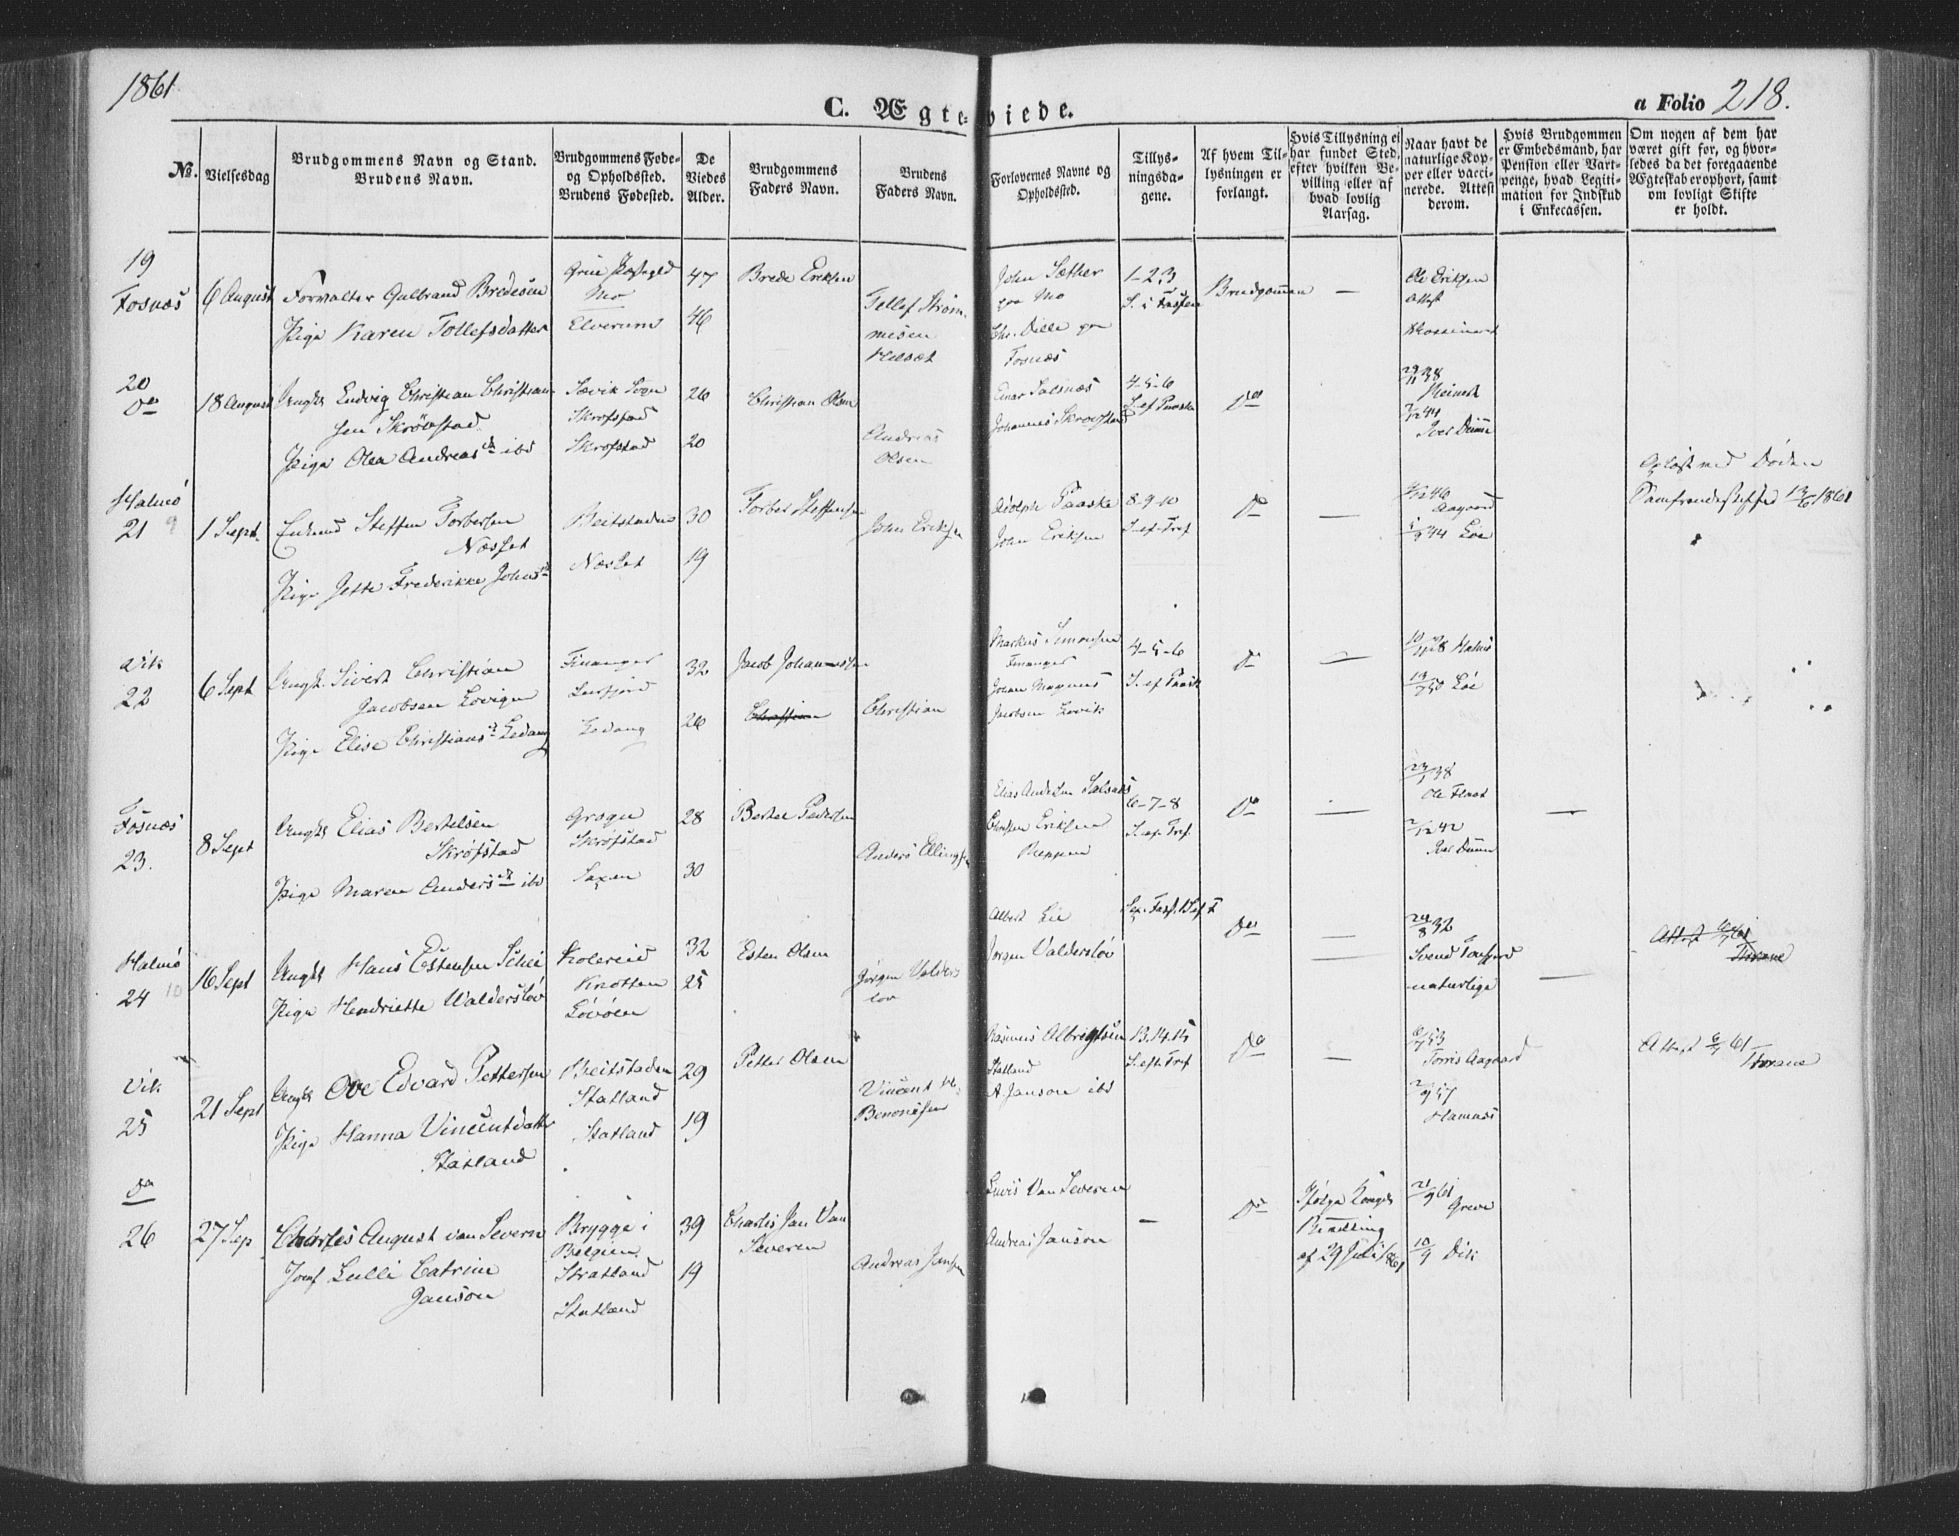 1861
C. Ægteviede.
a Folio 218.
No.
Vielsesdag
Brudgommens Navn og Stand.
Brudens Navn.
Brudgommens Føde-
og Opholdssted.
Brudens Fødested.
De
Viedes
Alder.
Brudgommens
Faders Navn.
Brudens
Faders Navn.
Forlovernes Navne og
Opholdssted.
Tillys-
ningsda-
gene.
Af hvem Til-
lysningen er
forlangt.
Hvis Tillysning ei
har fundet Sted,
efter hvilken Be-
villing eller af
hvad lovlig
Aarsag.
Naar havt de
naturlige Kop-
per eller vacci-
nerede. Attest
derom.
Hvis Brudgommen
er Embedsmand, har
Pension eller Vart-
penge, hvad Legiti-
mation for Indskud
i Enkecassen.
Om nogen af dem har
været gift før, og hvor-
ledes da det foregaaende
Ægteskab er ophørt, samt
om lovligt Skifte
er holdt.
19
Fosnæs
6 August
Forvalter Gulbrand Bredesen
Pige Karen Tollefsdatter
Mo
Elverum
47
46
Brede Eriksen
Tollef Strøm-
mesen
John Sæther
paa Mo
Chr. Dille paa
Fosnæs
1-2,3
S. i Fasten
Brudgommen
—
Ole Eriksen
Attest
20
Do
18 August
Ungk Ludvig Christian Christian-
sen Skrøvstad
Pige Olea Andreasd ibd
Sævik Sogn
Skrofstad
Skrofstad
26
20
Christian Olsen
Andreas
Olsen
Einar Salsnæs
Johannes Skrovstad
4-5-6
S. ef Paaske
Do
29/11 38
7/12 44
Iver Dunn
Halmø
21 9
1 Sept.
Enkmd Steffen Torbersen
Næsset
Pige Jette Frederikke Johnsd
Beitstaden
Næsset
30
19
Torber Steffensen
John Eriksen
Adolph Paaske
John Eriksen
8-9-10
S. ef. Tref
Do
—
Aagaard
1/9 44 Løe
Opløst med Døden
Samfrendeskifte 13/6 1861
Vik
22
6 Sept
Ungk. Sivert Christian
Jacobsen Lovign
Pige Elise Christiansd Ledang
Finanger
Ledang
32
26
Jacob Johannessen
Christian
Markus Simonsen
Finanger
Johan Magnus
Jacobsen Lovik
4-5-6
S. ef Paask
Do
—
19/7 50 Løe
Fosnæs
23.
8 Sept
Ungk Elias Bertelsen
Skrøfstad
Pige Maren Andersd ibd
Skrøfstad
28
30
Bertel Pedersen
Anders Ellingsen
Elias Andersen Salsnæs
Eriksen
6-7-8
S. ef. Tref.
Do
—
—
23/1 38
2/12 42
Iver Dunn
Halmø
24 10
16 Sept
Ungk Hans Estensen Schei
Pige Hendriette Walderslöv
Kolereid
Knotten
Løvøen
32
25
Esten Olsen
Jørgen Valders-
lov
Albert Lie
Jørgen Valderslov
Do
—
—
—
24/8 32
Svend
naturlige
Attest
Vik
25
21 Sept
Ungk Ove Edvard Pettersen
Pige Hanna Vincentdatter
Statland
Beitstaden
Statland
Statland
29
19
Petter Olsen
Vincent
Benonisen
Rasmus Albregtsen
Statland
A. Janson ibd
13.14.15
S. eft. Tref
Do
—
Torris Aagaard
2/9 57
Hamnæs
Attest 6/7 61
Do
26
27 Sep
Charles August van Severn
Jomf Lulli Catrine
Janson
Brygge i
Belgien
Stratland
Statland
39
19
Charles Jan Van
Severen
Andreas Jansen
Luvis Van Severen
Andreas Janson
—
Do
Ifølge Kongel.
Bevilling
af 29 Juli 1861
21/9 61
Greve
10/9 Vik